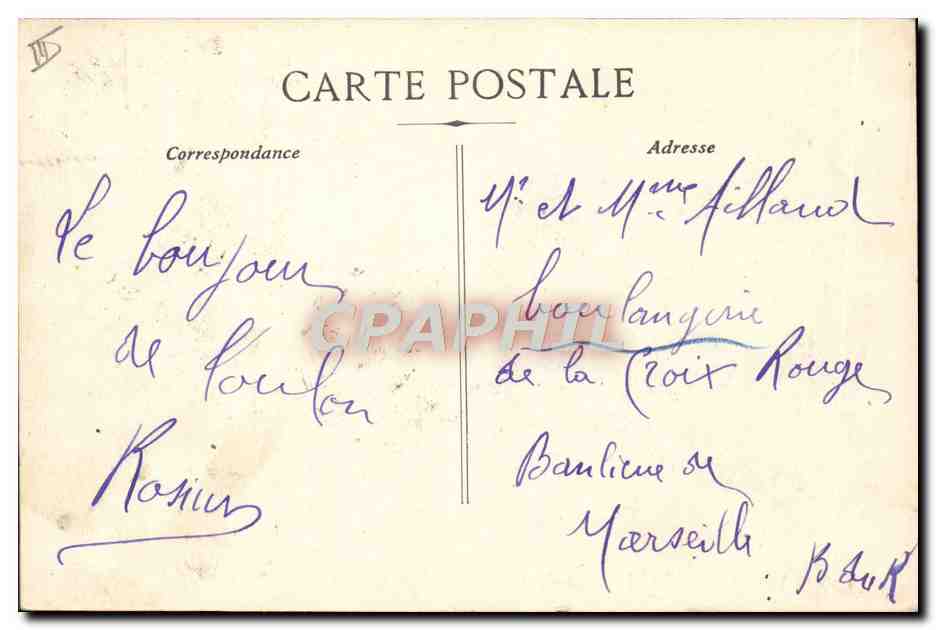 CARTE POSTALE
Correspondance
Le bonjour
de Toulon
Adresse
Mr et Mme Aillaud
boulangerie
de la Croix Rouge
Banlieue de
Marseille
B du R
CPAPHIL